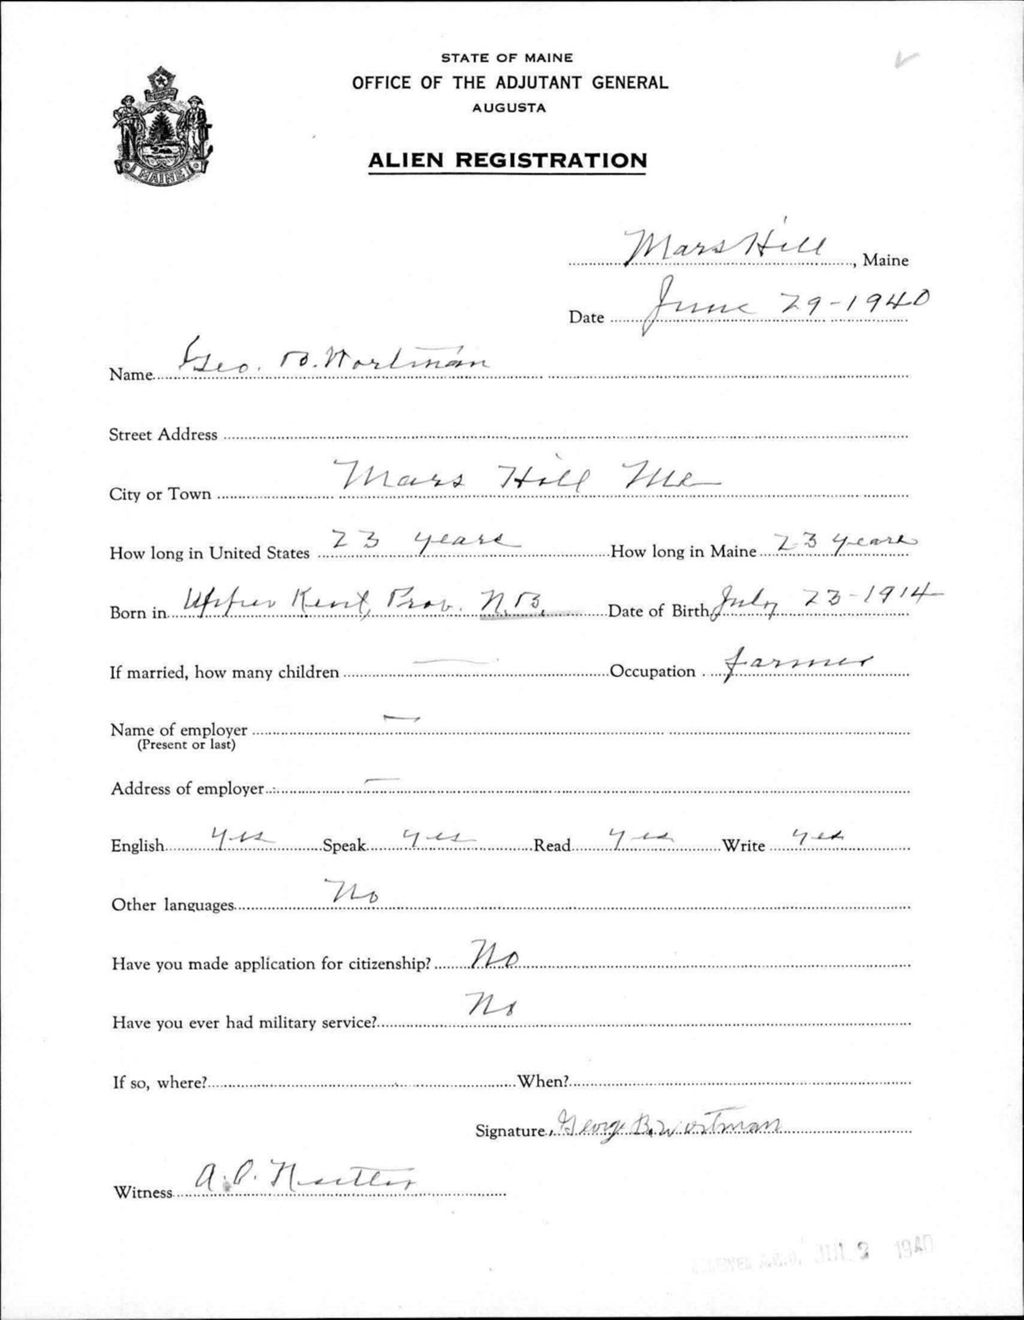 STATE OF MAINE
OFFICE OF THE ADJUTANT GENERAL
AUGUSTA
ALIEN REGISTRATION
MAINE
Mars Hill, Maine
Date June 29-1940
Name Geo. B. Wortman
Street Address
City or Town Mars Hill Me
How long in United States 23 years How long in Maine 23 years
Born in Upper Kent, Prov. N.B. Date of Birth July 23-1914
If married, how many children — Occupation farmer
Name of employer —
(Present or last)
Address of employer —
English yes Speak yes Read yes Write yes
Other languages No
Have you made application for citizenship? No
Have you ever had military service? No
If so, where? When?
Signature George B. Wortman
Witness A. P.
A.G.O. JUL 2 1940